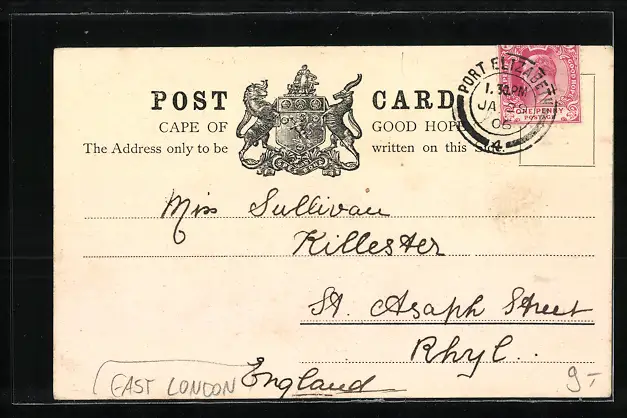 POST CARD
CAPE OF GOOD HOPE
The Address only to be written on this Side.
PORT ELIZABETH
1.30PM
JA 
4
ONE PENNY
POSTAGE
Miss Sullivan
Killester
St. Asaph Street
Rhyl.
England
EAST LONDON
9-